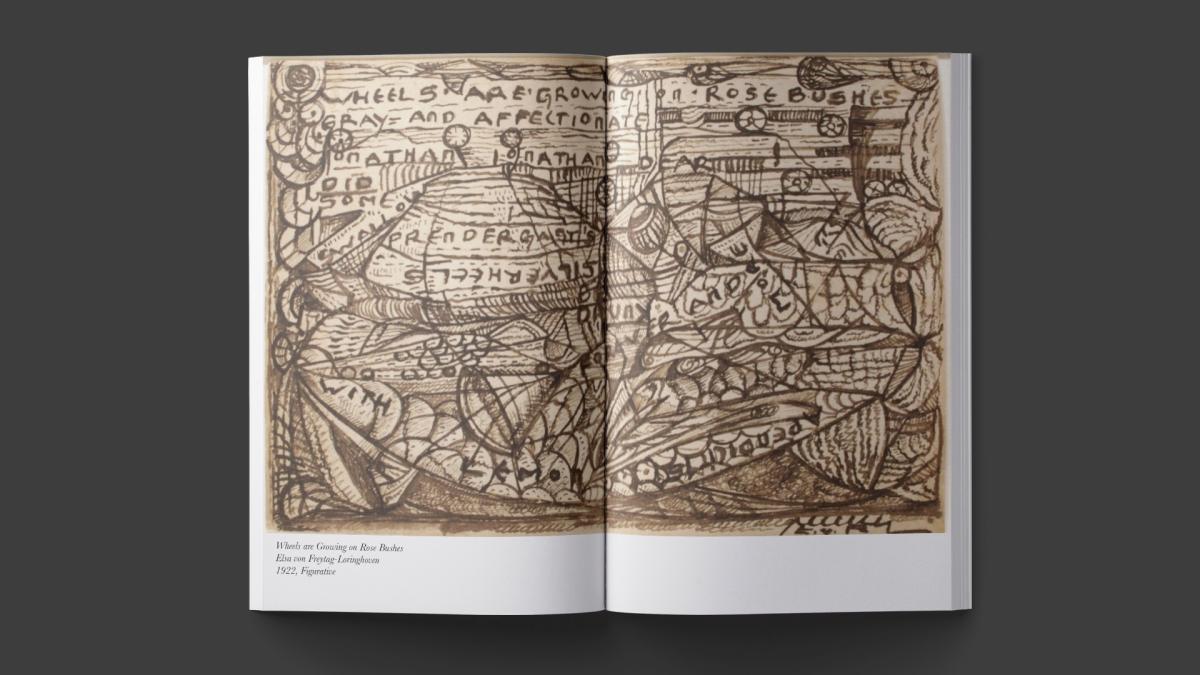 WHEELS ARE GROWING ON ROSE BUSHES
GRAY= AND AFFECTIONATE
ONATHAN JONATHAN DEAR
DID
SOME
PRENDERGASTS
SILVERHEELS
AND
WITH
LEMON
APENDICITIS
Wheels are Growing on Rose Bushes
Elsa von Freytag-Loringhoven
1922, Figurative